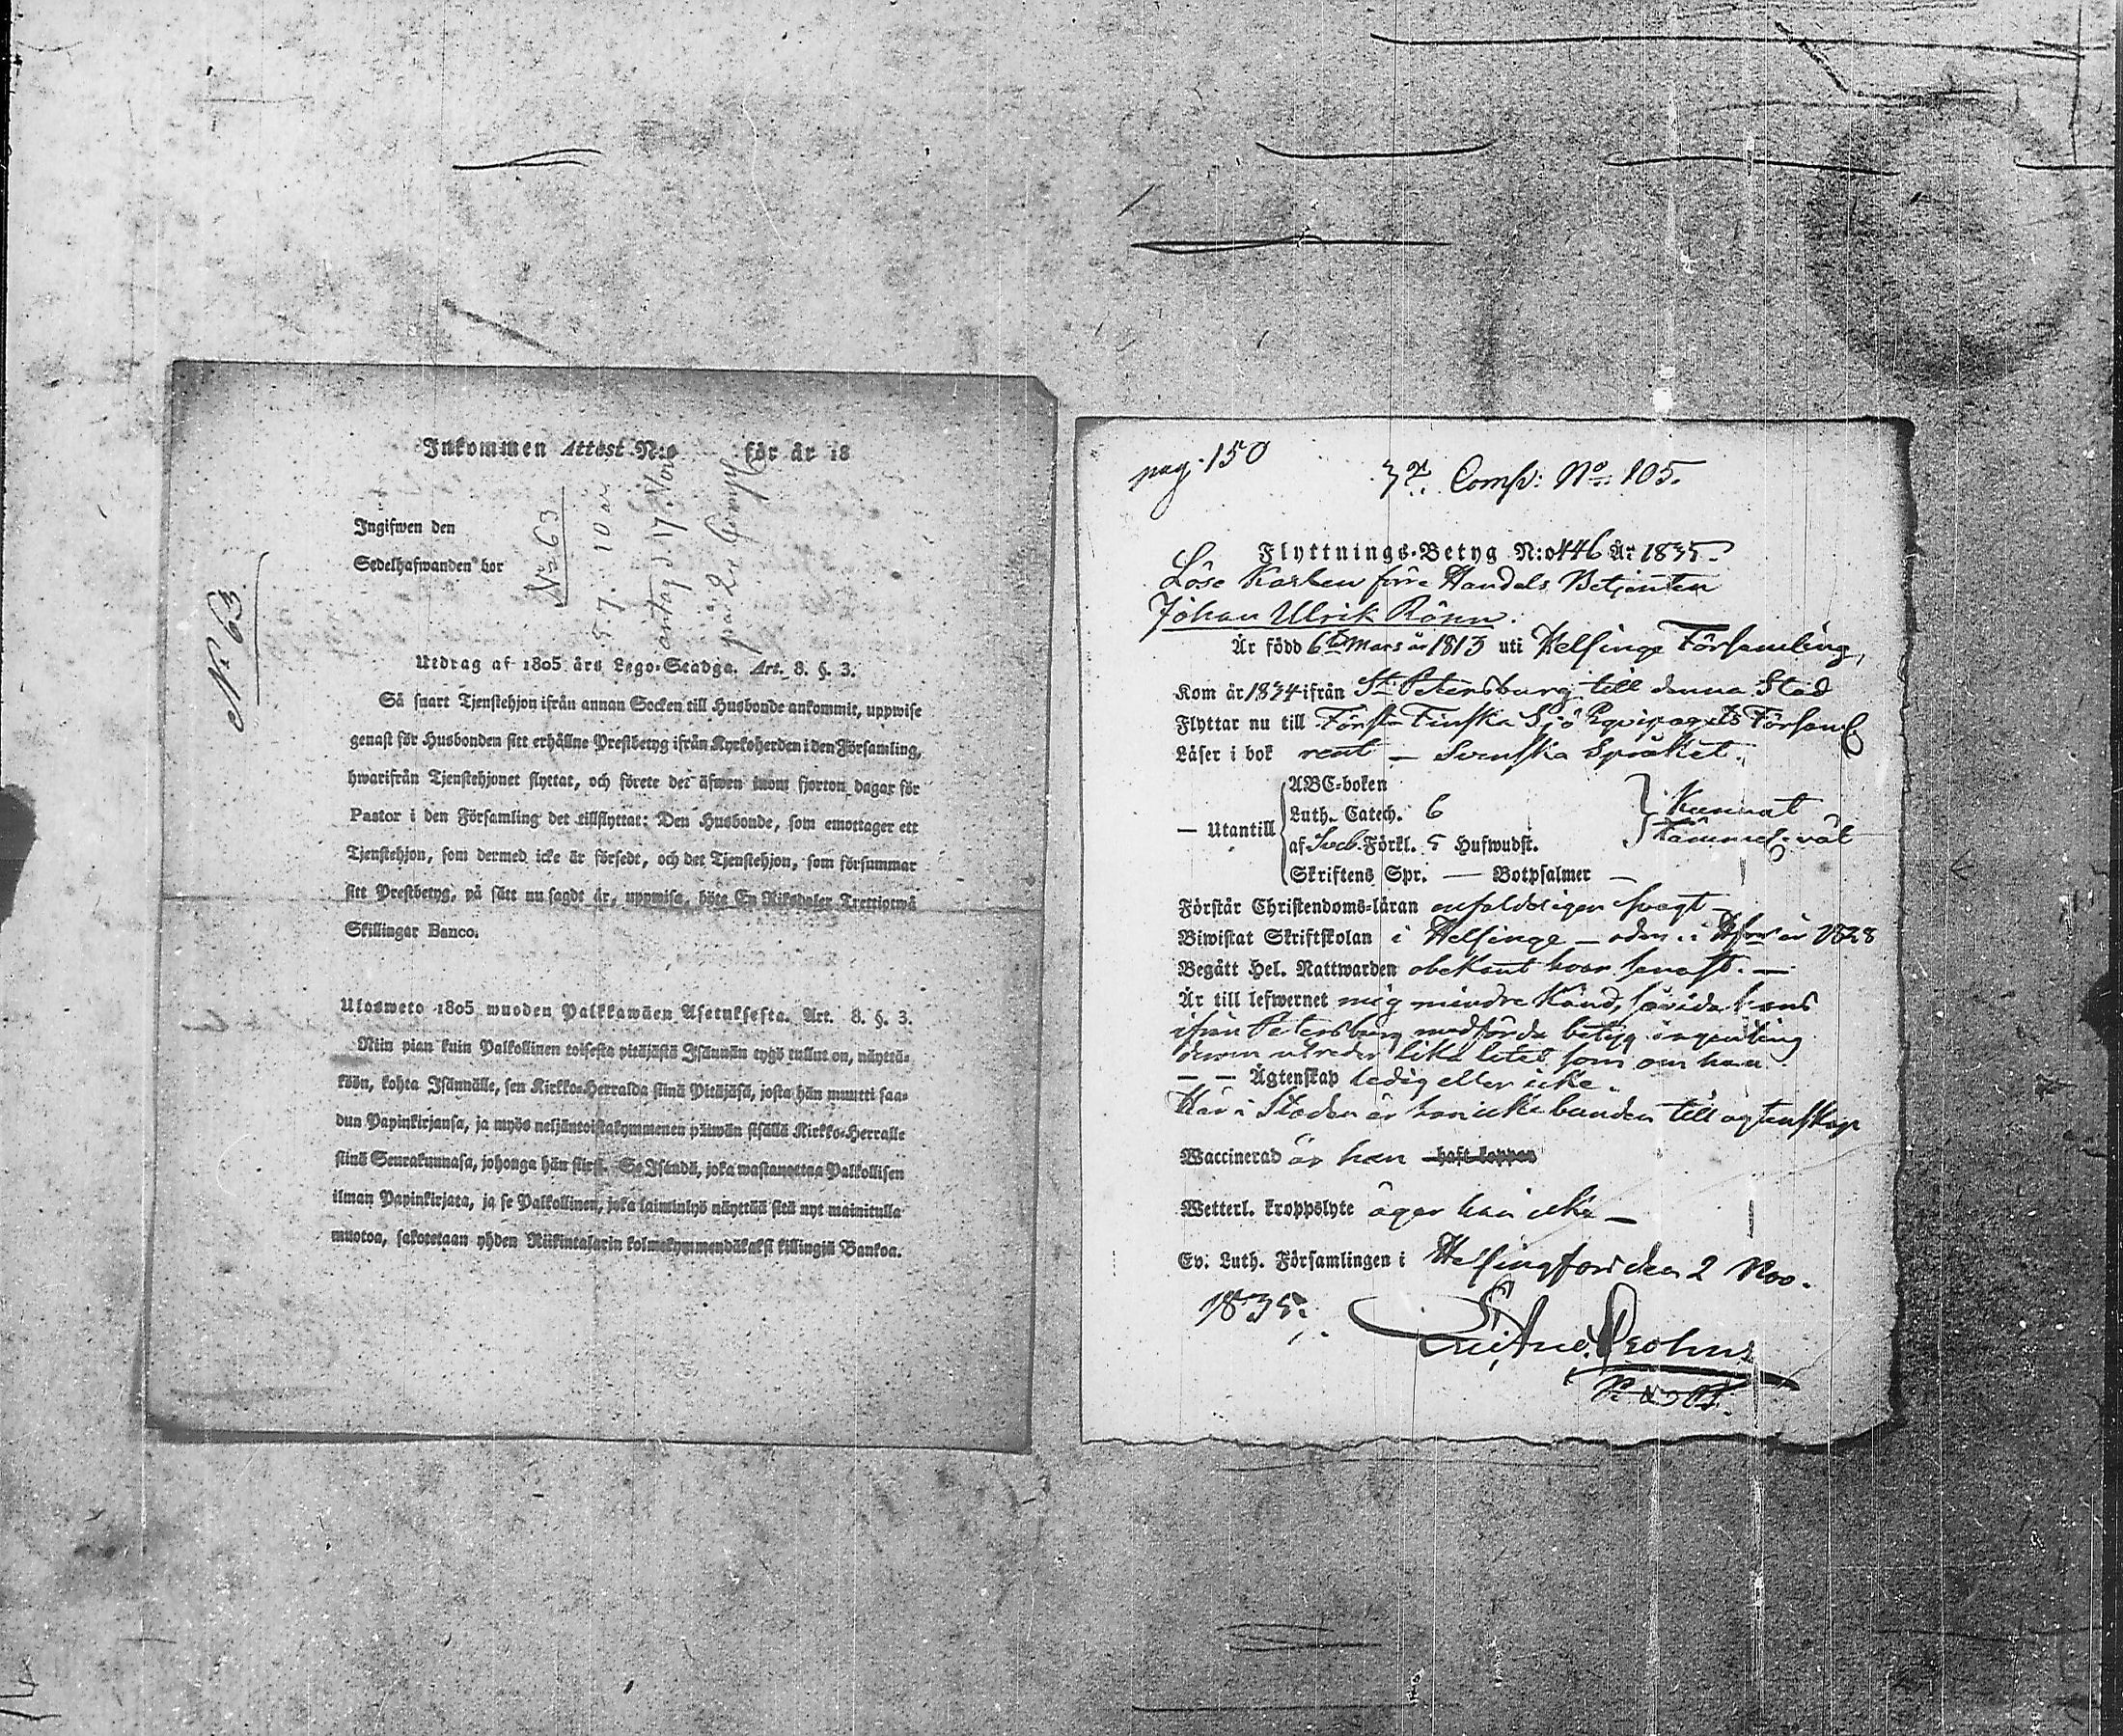 Inkommen Attest N:o för år 18
Ingifwen den
Sedelhafwanden bor
No 63
5. 7. 10
antag d. 17 Nov
på 2. Comp
N. 63
Utdrag af 1805 års Lego-Stadga. Art. 8. §. 3.
Så snart Tjenstehjon ifrån annan Socken till Husbonde ankommit, uppwise
genast för Husbonden sitt erhållne Prestbetyg ifrån Kyrkoherden i den Församling,
hwarifrån Tjenstehjonet flyttat, och förete det äfwen inom fjorton dagar för
Pastor i den Församling det tillflyttat: Den Husbonde, som emottager ett
Tjenstehjon, som dermed icke är försedt, och det Tjenstehjon, som försummar
sitt Prestbetyg, på sätt nu sagdt är, uppwisa, böte En Riksdaler Trettiotwå
Skillingar Banco.
Ulosweto 1805 wuoden Palkkawäen Asetuksesta. Art. 8. §. 3.
Niin pian kuin Palkollinen toisesta pitäjästä Isännän tygö tullut on, näyttä-
köön, kohta Isännälle, sen Kirkko-Herralda siinä Pitäjäsä, josta hän muutti saa-
dun Papinkirjansa, ja myös neljäntoistakymmenen päiwän sisällä Kirkko-Herralle
siinä Seurakunnasa, johonga hän siirsi. Se Isändä, joka wastanottaa Palkollisen
ilman Papinkirjata, ja se Palkollinen, joka laiminlyö näyttää sitä nyt mainitulla
muotoa, sakotetaan yhden Riikintalarin kolmekymmendäkaksi killingiä Bankoa.
pag. 150
Comp: No: 105.
Flyttnings-Betyg N:o 446 År 1835.
Löse Karlen förre Handels Betjenten
Johan Ulrik Rönn.
Är född 6te Mars år 1813 uti Helsinge Församling,
Kom år 1834 ifrån St. Petersburg till denna Stad
Flyttar nu till Första Finska Sjö Equipagets Församl.
Läser i bok rent — Svenska Språket.
— Utantill
ABC-boken
Luth. Catech. 6
af Sveb. Förkl. 5 Hufwudst.
Skriftens Spr. — Botpsalmer —
Kunnat
Förstår Christendoms-läran enfaldigen svagt —
Biwistat Skriftskolan i Helsinge — år 1828
Begått Hel. Nattwarden obekant hvar senast. —
Är till lefwernet mig mindre känd, hans
ifrån Petersburg medförda betyg ingenting
derom utreder lika litet som om han
— — Ägtenskap ledig eller icke.
Här i Staden är han icke bunden till ägtenskap
Waccinerad är han haft koppor
Wetterl. kroppslyte äger han icke —
Ev: Luth. Församlingen i Helsingfors den 2 Nov.
1835.